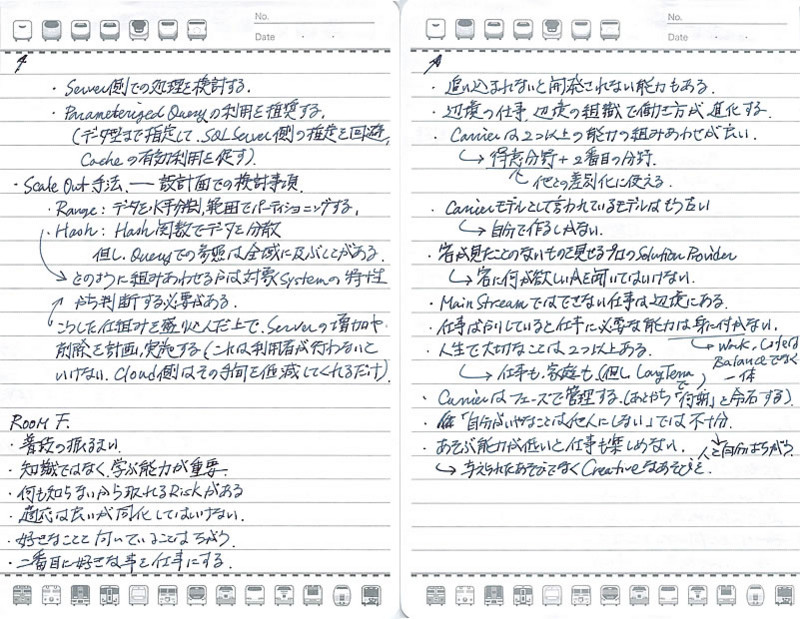 No.
Date
・Server側での処理を検討する.
・Parameterized Queryの利用を推奨する.
(データ型まで指定して、SQL Server側の推定を回避,
Cacheの有効利用を促す).
・Scale Out手法. ― 設計面での検討事項.
・Range: データを水平分割, 範囲でパーティショニングする.
・Hash: Hash関数でデータを分散
但し、Queryでの参照は全域に及ぶことがある.
→どのように組みあわせるかは対象Systemの特性
から判断する必要がある.
こうした仕組みを盛り込んだ上で、Serverの増加や
削除を計画,実施する(これは利用者が行わないと
いけない. Cloud側はその手間を低減してくれるだけ).
ROOM F.
・普段の振るまい.
・知識ではなく、学ぶ能力が重要.
・何も知らないから取れるRiskがある
・適応は良いが同化してはいけない.
・好きなことと向いていることはちがう.
・二番目に好きな事を仕事にする.
No.
Date
・追い込まれないと開発されない能力もある.
・辺境の仕事、辺境の組織で働き方が進化する.
・Carrierは2つ以上の能力の組みあわせが良い.
→得意分野+2番目の分野.
他との差別化に使える.
・Carrierモデルとして言われているモデルはもう古い
→自分で作るしかない.
・客が見たことのないものを見せるプロのSolution Provider
→客に何が欲しいかを聞いてはいけない.
・Main Streamではできない仕事は辺境にある.
・仕事ばかりしていると仕事に必要な能力は身に付かない.
・人生で大切なことは2つ以上ある.
→Work, Life
Balanceでなく
一体
→仕事も、家庭も.(但し Long Termで)
・Carrierはフェーズで管理する.(あとから「付箋」と命名する)
・「自分がいやなことは他人にしない」では不十分.
人と自分はちがう
・あそぶ能力が低いと仕事も楽しめない.
→与えられたあそびでなくCreativeなあそびを.